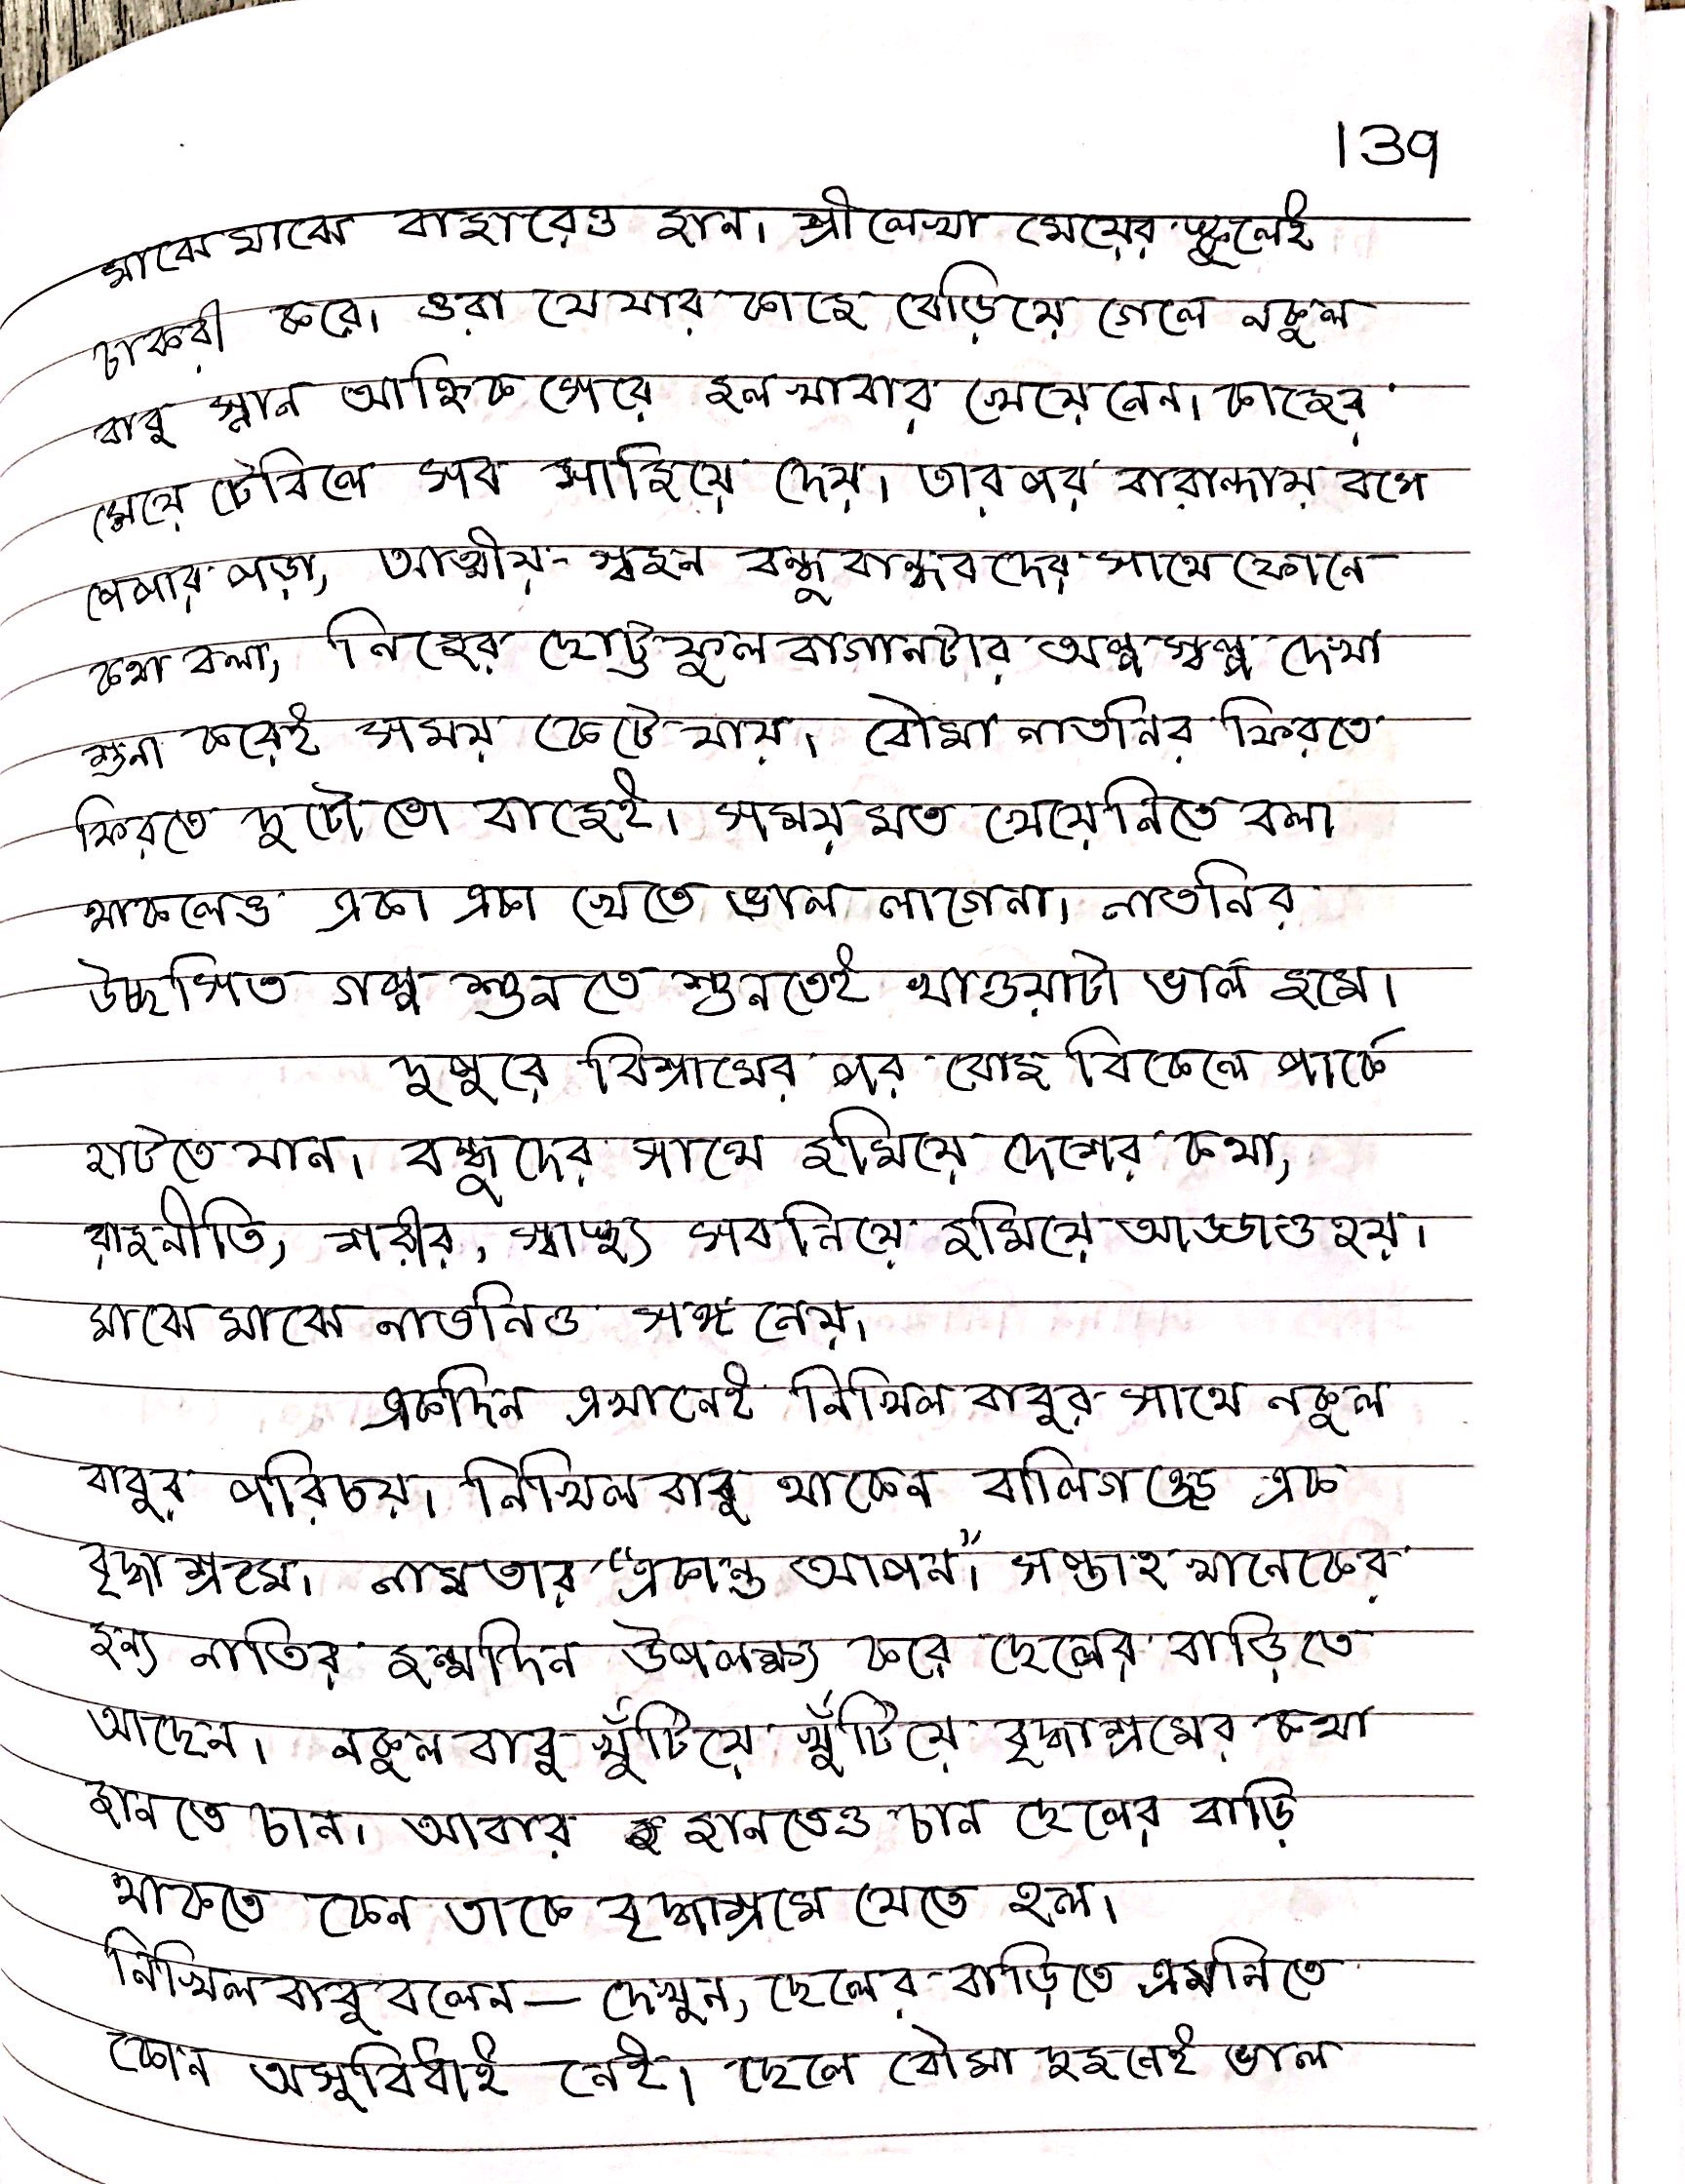 139
মাঝে মাঝে বাজারেও যান। শ্রীলেখা মেয়ের স্কুলেই
চাকরী করে। ওরা যে যার কাজে বেড়িয়ে গেলে নকুল
বাবু স্নান আহ্নিক সেরে জল খাবার খেয়ে নেন। কাজের
মেয়ে টেবিলে সব সাজিয়ে দেয়। তারপর বারান্দায় বসে
পেপার পড়া, আত্মীয়-স্বজন বন্ধু বান্ধবদের সাথে ফোনে
কথা বলা, নিজের ছোট্ট ফুল বাগানটার অল্প স্বল্প দেখা
শুনা করেই সময় কেটে যায়। বৌমা নাতনির ফিরতে
ফিরতে দুটো তো বাজেই। সময় মত খেয়ে নিতে বলা
থাকলেও একা একা খেতে ভাল লাগেনা। নাতনির
উচ্ছসিত গল্প শুনতে শুনতেই খাওয়াটা ভাল জমে।
দুপুরে বিশ্রামের পর রোজ বিকেলে পার্কে
হাটতে যান। বন্ধুদের সাথে জমিয়ে দেশের কথা,
রাজনীতি, শরীর, স্বাস্থ্য সব নিয়ে জমিয়ে আড্ডাও হয়।
মাঝে মাঝে নাতনিও সঙ্গ নেয়।
একদিন এখানেই নিখিল বাবুর সাথে নকুল
বাবুর পরিচয়। নিখিল বাবু থাকেন বালিগঞ্জে এক
বৃদ্ধাশ্রমে। নাম তার "একান্ত আপন"। সপ্তাহ খানেকের
জন্য নাতির জন্মদিন উপলক্ষ্য করে ছেলের বাড়িতে
আছেন। নকুল বাবু খুঁটিয়ে খুঁটিয়ে বৃদ্ধাশ্রমের কথা
জানতে চান। আবার জানতেও চান ছেলের বাড়ি
থাকতে কেন তাকে বৃদ্ধাশ্রমে যেতে হল।
নিখিল বাবু বলেন — দেখুন, ছেলের বাড়িতে এমনিতে
কোন অসুবিধাই নেই। ছেলে বৌমা দুজনেই ভাল